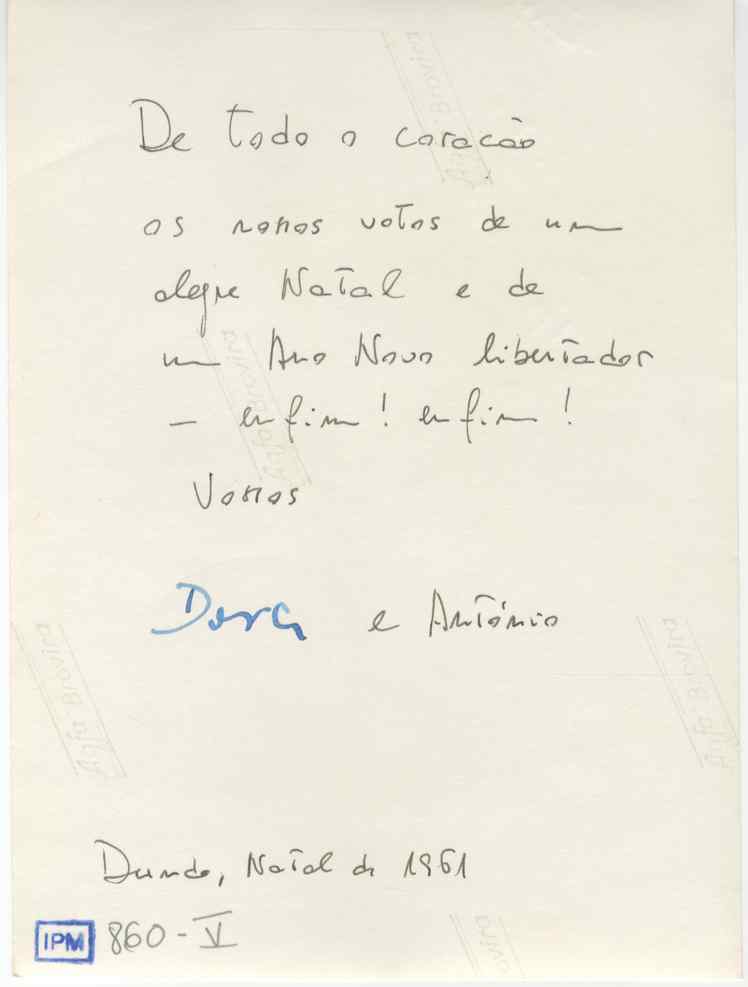 De todo o coracão
os nossos votos de um
alegre Natal e de
um Ano Novo libertador
— enfim! enfim!
Vossos
Dora e António
Dundo, Natal de 1961
IPM 860-V
Agfa Brovira
Agfa Brovira
Agfa Brovira
Agfa Brovira
ovira